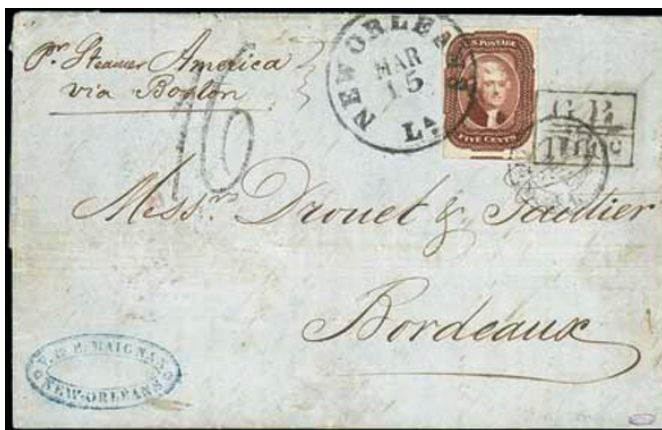 pr. Steamer America
via Boston
NEW ORLEANS
MAR
15
La
U.S. POSTAGE
FIVE CENTS
G.B.
1F60c
16
Messrs. Drouet &
Bordeaux
MAIGNAN
NEW-ORLEANS